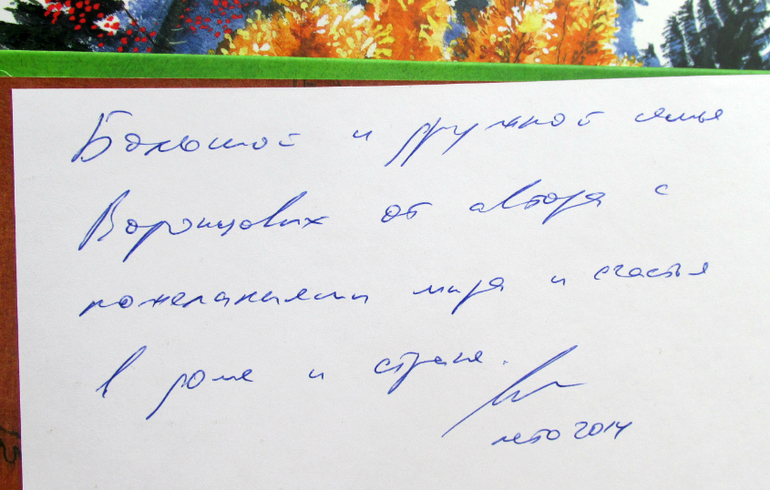 Большой и дружной семье
Воронцовых от автора с
пожеланиями мира и счастья
в доме и стране.
лето 2014